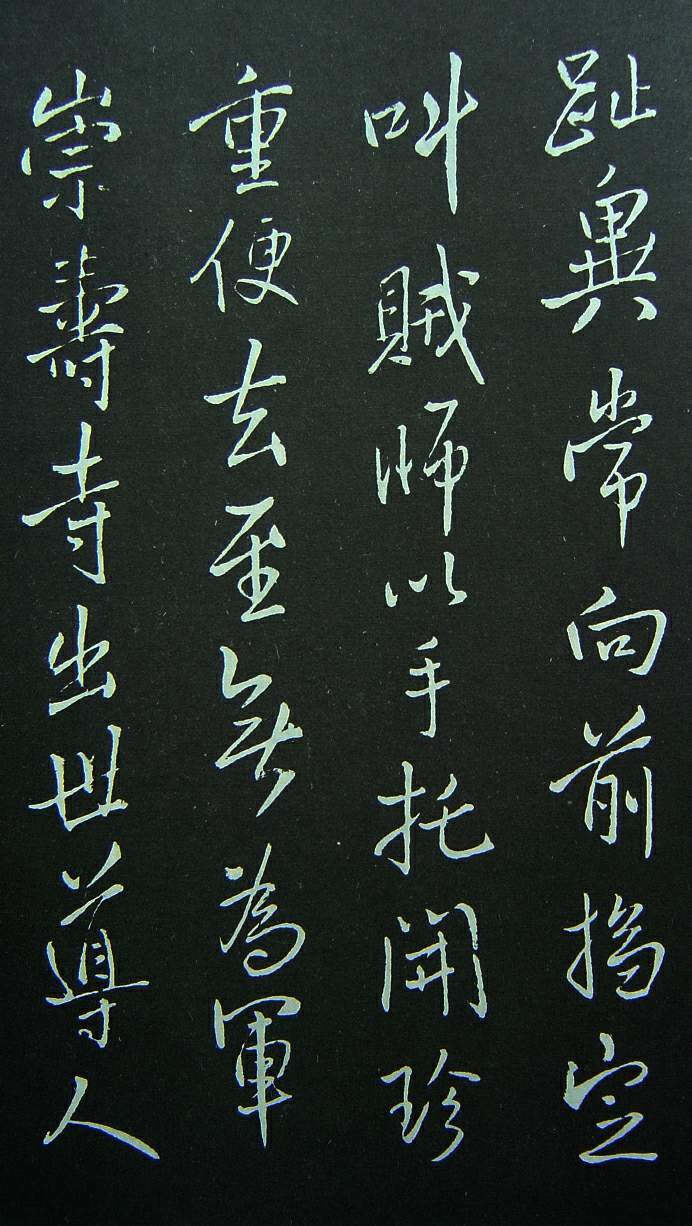 趾異常向前搊定
叫賊師以手托開珍
重便去至無為軍
崇壽寺出世導人